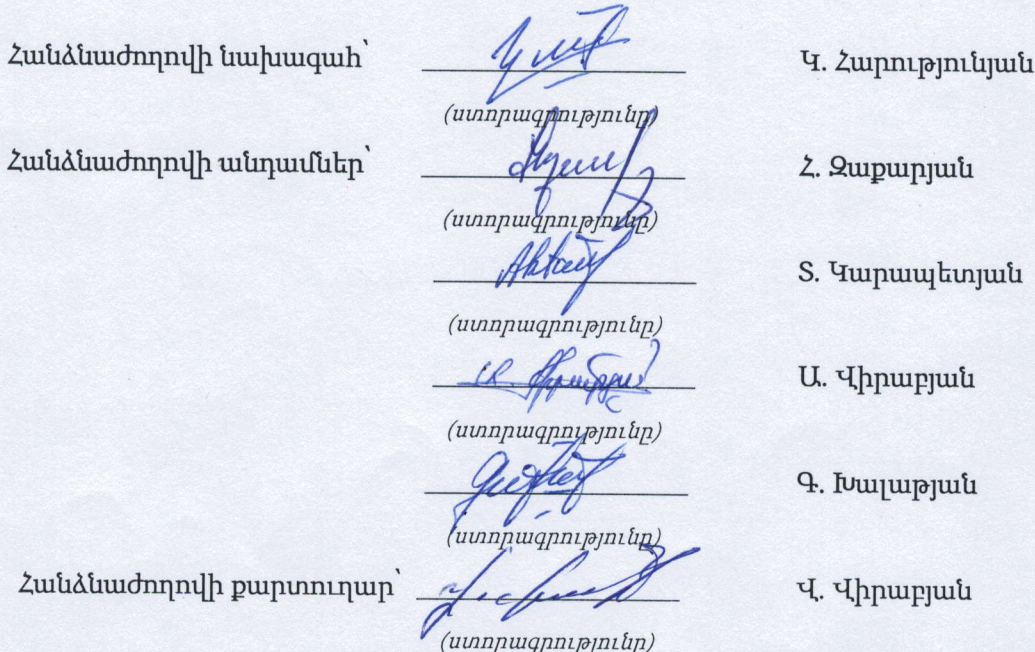 Հանձնաժողովի նախագահ՝ Կ. Հարությունյան
(ստորագրությունը)
Հանձնաժողովի անդամներ՝ Հ. Զաքարյան
(ստորագրությունը)
Տ. Կարապետյան
(ստորագրությունը)
Ա. Վիրաբյան
(ստորագրությունը)
Գ. Խալաթյան
(ստորագրությունը)
Հանձնաժողովի քարտուղար՝ Վ. Վիրաբյան
(ստորագրությունը)